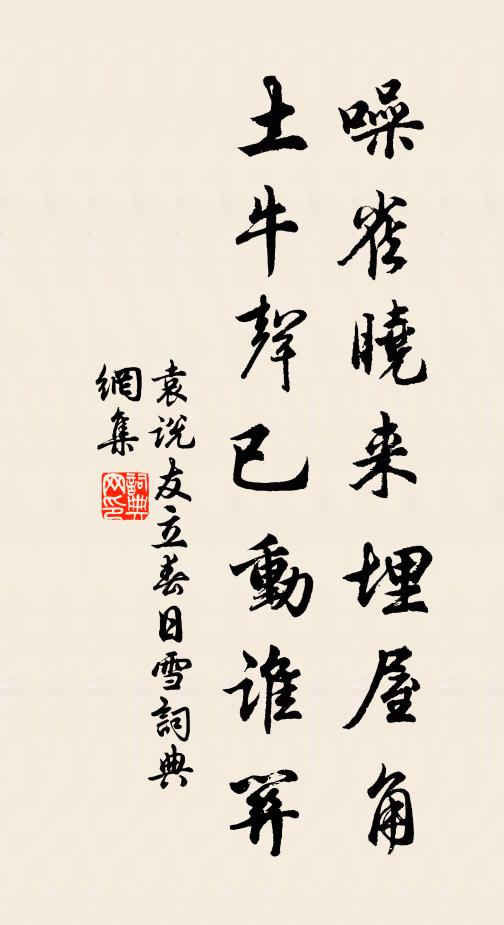 噪雀曉来埋屋角
土牛聲已動谯門
袁说友立春日雪詞典
網集
詞典
网印